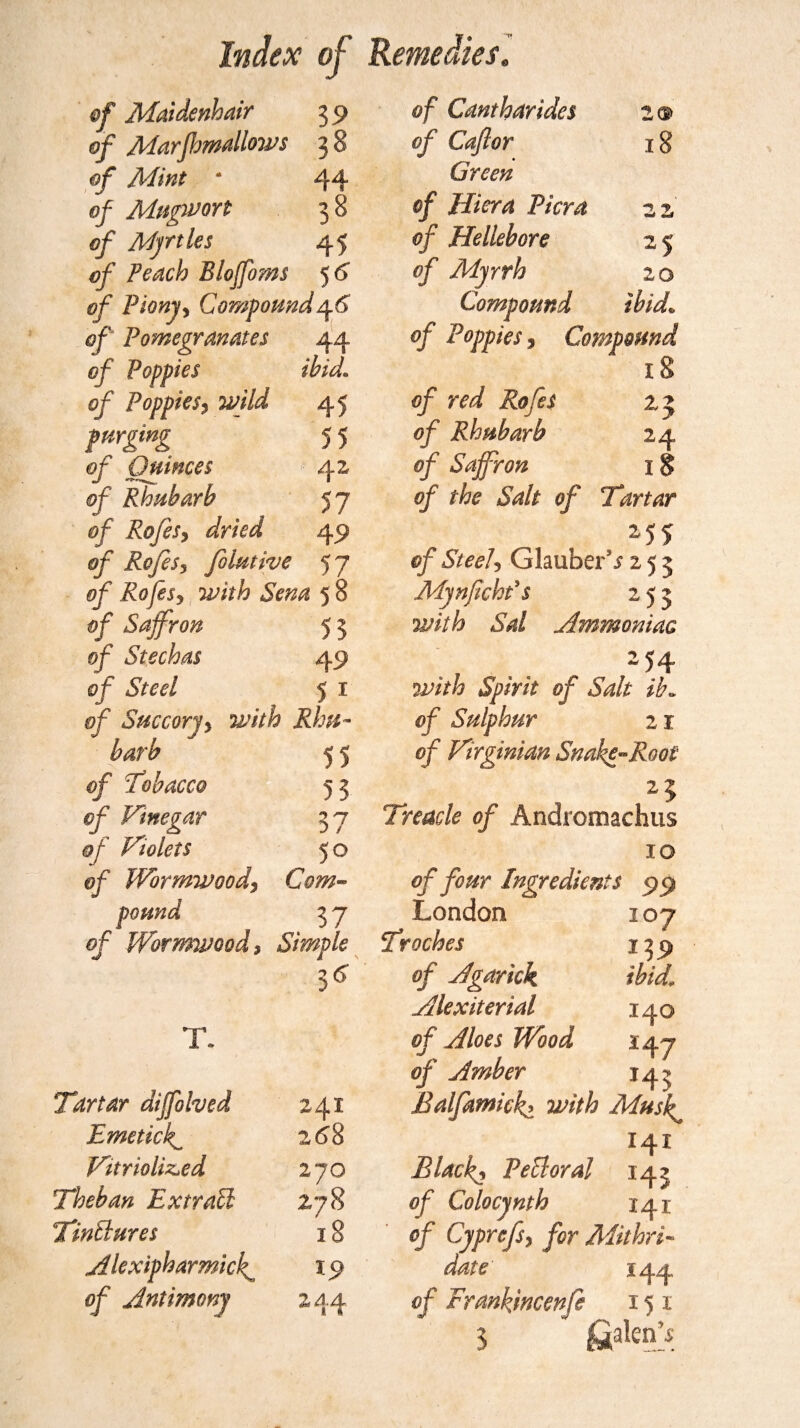 Index of Remedies.
of Maidenhair 39
of Marſhmallows 38
of Mint 44
of Mugwort 38
of Myrtles 45
of Peach Bloſſoms 56
of Piony, Compound 46
of Pomegranates 44
of Poppies ibid.
of Poppies, wild 45
purging 55
of Quinces 42
of Rhubarb 57
of Roſes, dried 49
of Roſes, ſolutive 57
of Roſes, with Sena 58
of Saffron 53
of Stechas 49
of Steel 51
of Succory, with Rhu-
barb 55
of Tobacco 53
of Vinegar 37
of Violets 50
of Wormwood, Com-
pound 37
of Wormwood, Simple
36
T.
Tartar diſſolved 241
Emetick 268
Vitriolized 270
Theban Extract 278
Tinctures 18
Alexipharmick 19
of Antimony 244
of Cantharides 20
of Caſtor 18
Green
of Hiera Picra 22
of Hellebore 25
of Myrrh 20
Compound ibid.
of Poppies, Compound
18
of red Roſes 23
of Rhubarb 24
of Saffron 18
of the Salt of Tartar
255
of Steel, Glauber's 253
Mynſicht's 253
with Sal Ammoniac
254
with Spirit of Salt ib.
of Sulphur 21
of Virginian Snake-Root
23
Treacle of Andromachus
10
of four Ingredients 99
London 107
Troches 139
of Agarick ibid.
Alexiterial 140
of Aloes Wood 147
of Amber 143
Balſamick, with Musk
141
Black, Pectoral 143
of Colocynth 141
of Cypreſs, for Mithri-
date 144
of Frankincenſe 151
3 Galen's